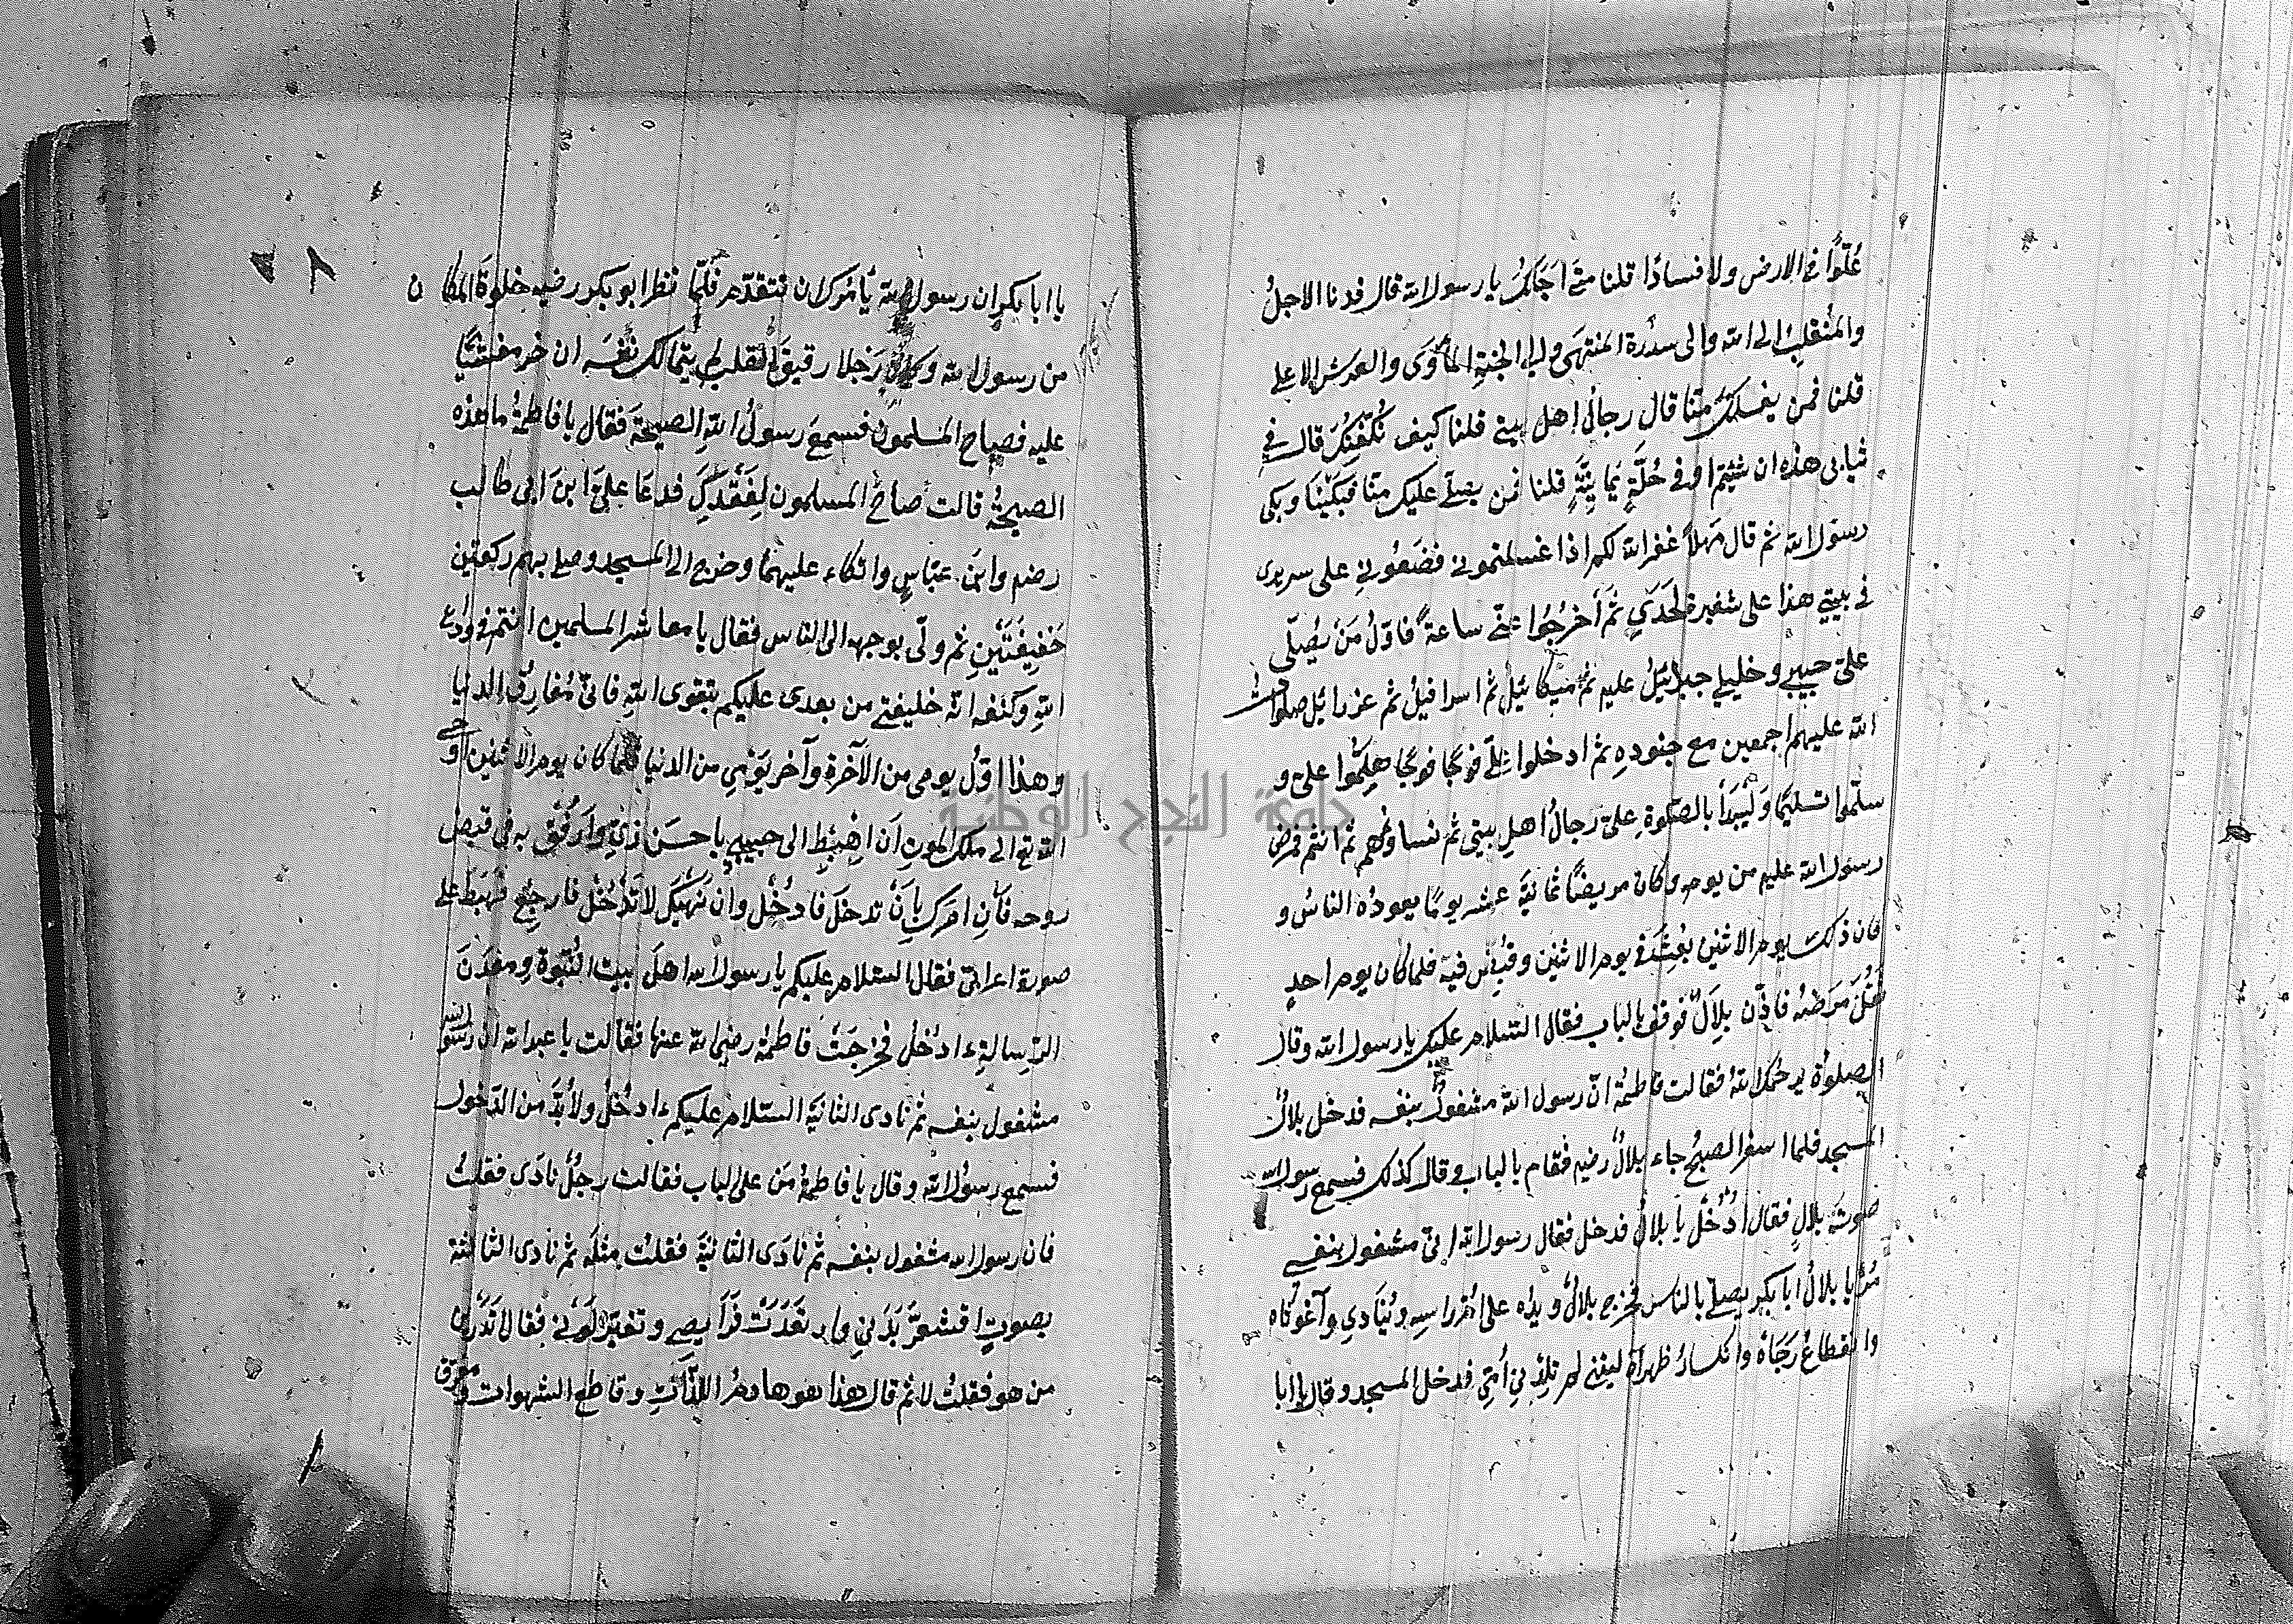 عُلُوًّا في الارض ولا فسادًا قلنا متى اجَلُكَ يا رسول الله قال قد دنا الاجلُ
والمُنقلبُ الى الله والى سدرة المنتهى والى الجنةِ المأوَى والعرش الاعلى
قلنا فمن يغسلك منّا قال رجالُ اهل بيتى قلنا كيف نُكَفِّنُكَ قال في
ثيابى هذه ان شئتم او في حُلَّةٍ يمَانِيَّةٍ قلنا فمن يصلّى عليك منّا فبَكَيْنَا وبكى
رسول الله ثم قال مَهلاً غفر الله لكم اذا غسلتمونى فضَعُونى على سريرى
في بيتى هذا على شفير لَحَدى ثم اَخرُجُوا عنّى ساعةً فاوّلُ مَنْ يُصلّى
علىّ حبيبى وخليلى جبرائيلُ عليه ثم ميكائيل ثم اسرافيلُ ثم عزرائيل صلوات
الله عليهم اجمعين مع جنودهِ ثم ادخلوا علىّ فوجًا فوجًا صلّوا علىّ و
سلّموا تسليمًا وَلْيَبْدَأْ بالصلوةِ علىّ رجالُ اهلِ بيتى ثم نساؤهم ثم انتم فمرض
رسول الله عليه من يومه وكان مريضًا ثمانيَةَ عشر يومًا يعودُه الناسُ و
كان ذلك يوم الاثنين بُعِثَ في يوم الاثنين وقُبِضَ فيه فلما كان يوم احدٍ
ثَقُلَ مرَضُه فاذّن بِلالٌ فوقف بالباب فقال السّلام عليك يا رسول الله وقال
الصلوة يرحمك اللهُ فقالت فاطمةُ انّ رسول الله مشغولٌ بنفسه فدخل بلالٌ
المسجد فلما اسفر الصبحُ جاء بلالٌ رضيه فقام بالباب وقال كذلك فسمع رسول الله
صوتَ بلالٍ فقال اُدْخُلْ يا بلالُ فدخل فقال رسول الله انّى مشغول بنفسى
مُرْ يا بلالُ ابا بكر يصلّى بالناس فخرج بلالٌ ويدُه على اُمّ راسه ويُنادى وآغَوْثَاه
وانقطاعُ رَجَاهْ وانكسارُ ظهراهْ ليتنى لم تلِدْنى اُمّى فدخل المسجد وقال يا ابا
يا ابا بكر ان رسول الله يأمُركَ ان تتقدّم فلمّا نظر ابو بكر رضيه خلوَةَ المكان
من رسول الله وكان رَجُلا رقيقَ القلب لم يتمالك نفسَه ان خر مغشيًّا
عليه فصاح المسلمون فسمعَ رسولُ اللهِ الصيحَةَ فقال يا فاطمةُ ما هذه
الصيحةُ قالت صاحَ المسلمون لِفَقْدِكَ فدعَا علىَّ ابنَ ابى طالب
رضه وابنَ عبّاسٍ واتكاء عليهمَا وخرج الى المسجد وصلى بهم ركعتين
خَفِيفَتَيْنِ ثم ولّى بوجهه الى الناس فقال يا معاشر المسلمين انتم في ودَعِ
اللهِ وكنفه الله خليفتى من بعدى عليكم بتقوى اللهِ فانّى مُفارِقُ الدنيا
وهذا اوّلُ يومى من الآخرة وآخر يَوْمى من الدنيا فلما كان يوم الاثنين اوحى
الله تع الى ملك الموت اَن اِهْبِطْ الى حبيبى باحسَن زِىٍّ وَارْفُقْ به في قبض
روحه فَاِنْ امَرك بِاَنْ تدخلَ فادخُل وان نَهَيكَ لا تَدْخُلْ فارجِعْ فهَبَطَ على
صورة اعرابىّ فقال السّلام عليكم يا رسول الله اهلَ بيت النُّبُوّة ومعدَنَ
الرّسالةِ ءادخُلُ فخرجَتْ فاطمةُ رضى الله عنها فقالت يا عبد الله ان رسول الله
مشغول بنفسه ثم نادى الثانيَة السّلام عليكم ءادخُلُ ولابُدّ من الدّخول
فسمع رسولُ الله وقال يا فاطمةُ مَن على الباب فقالت رجلٌ نادَى فقلتُ
فان رسول الله مشغول بنفسه ثم نادَى الثانيَةَ فقلتُ مثلَه ثم نادى الثالثة
بصوتٍ اقشعرّ بَدَنى وارتعَدَتْ فَرَايصى وتغيّر لَوْنى فقال تَدْرى
من هو فقلتُ لا ثم قال هذا هو هادمُ اللذّاتِ وقاطع الشهوات ومفرق
جامعة النجاح الوطنية